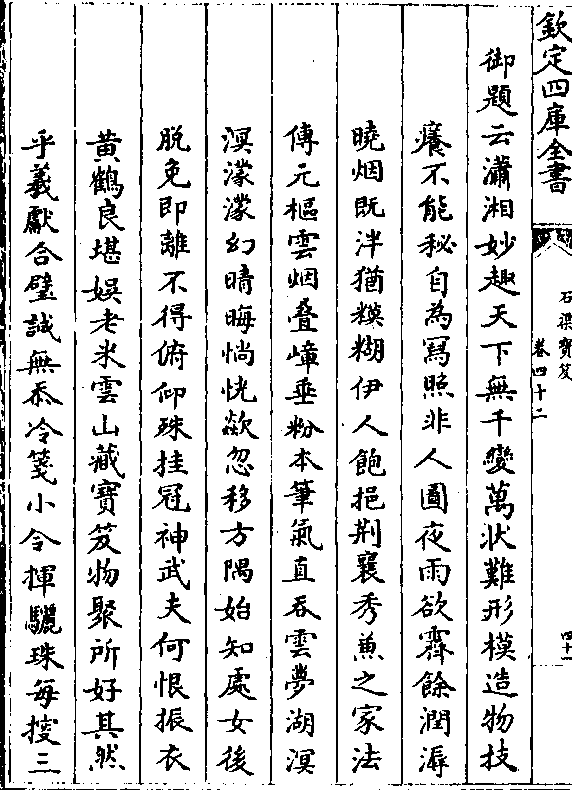 欽定四庫全書
石渠寶笈
卷四十二
四十一
御題云瀟湘妙趣天下無千變萬狀難形模造物技
癢不能秘自為寫照非人圖夜雨欲霽餘潤溽
曉烟既泮猶糢糊伊人飽挹荆襄秀兼之家法
傳元樞雲烟疊嶂垂粉本筆氣直吞雲夢湖溟
溟濛濛幻晴晦惝恍歘忽移方隅始知處女後
脱免即離不得俯仰殊挂冠神武夫何恨振衣
黄鶴良堪娛老米雲山藏寶笈物聚所好其然
乎羲獻合璧誠無忝冷箋小令揮驪珠每掞三